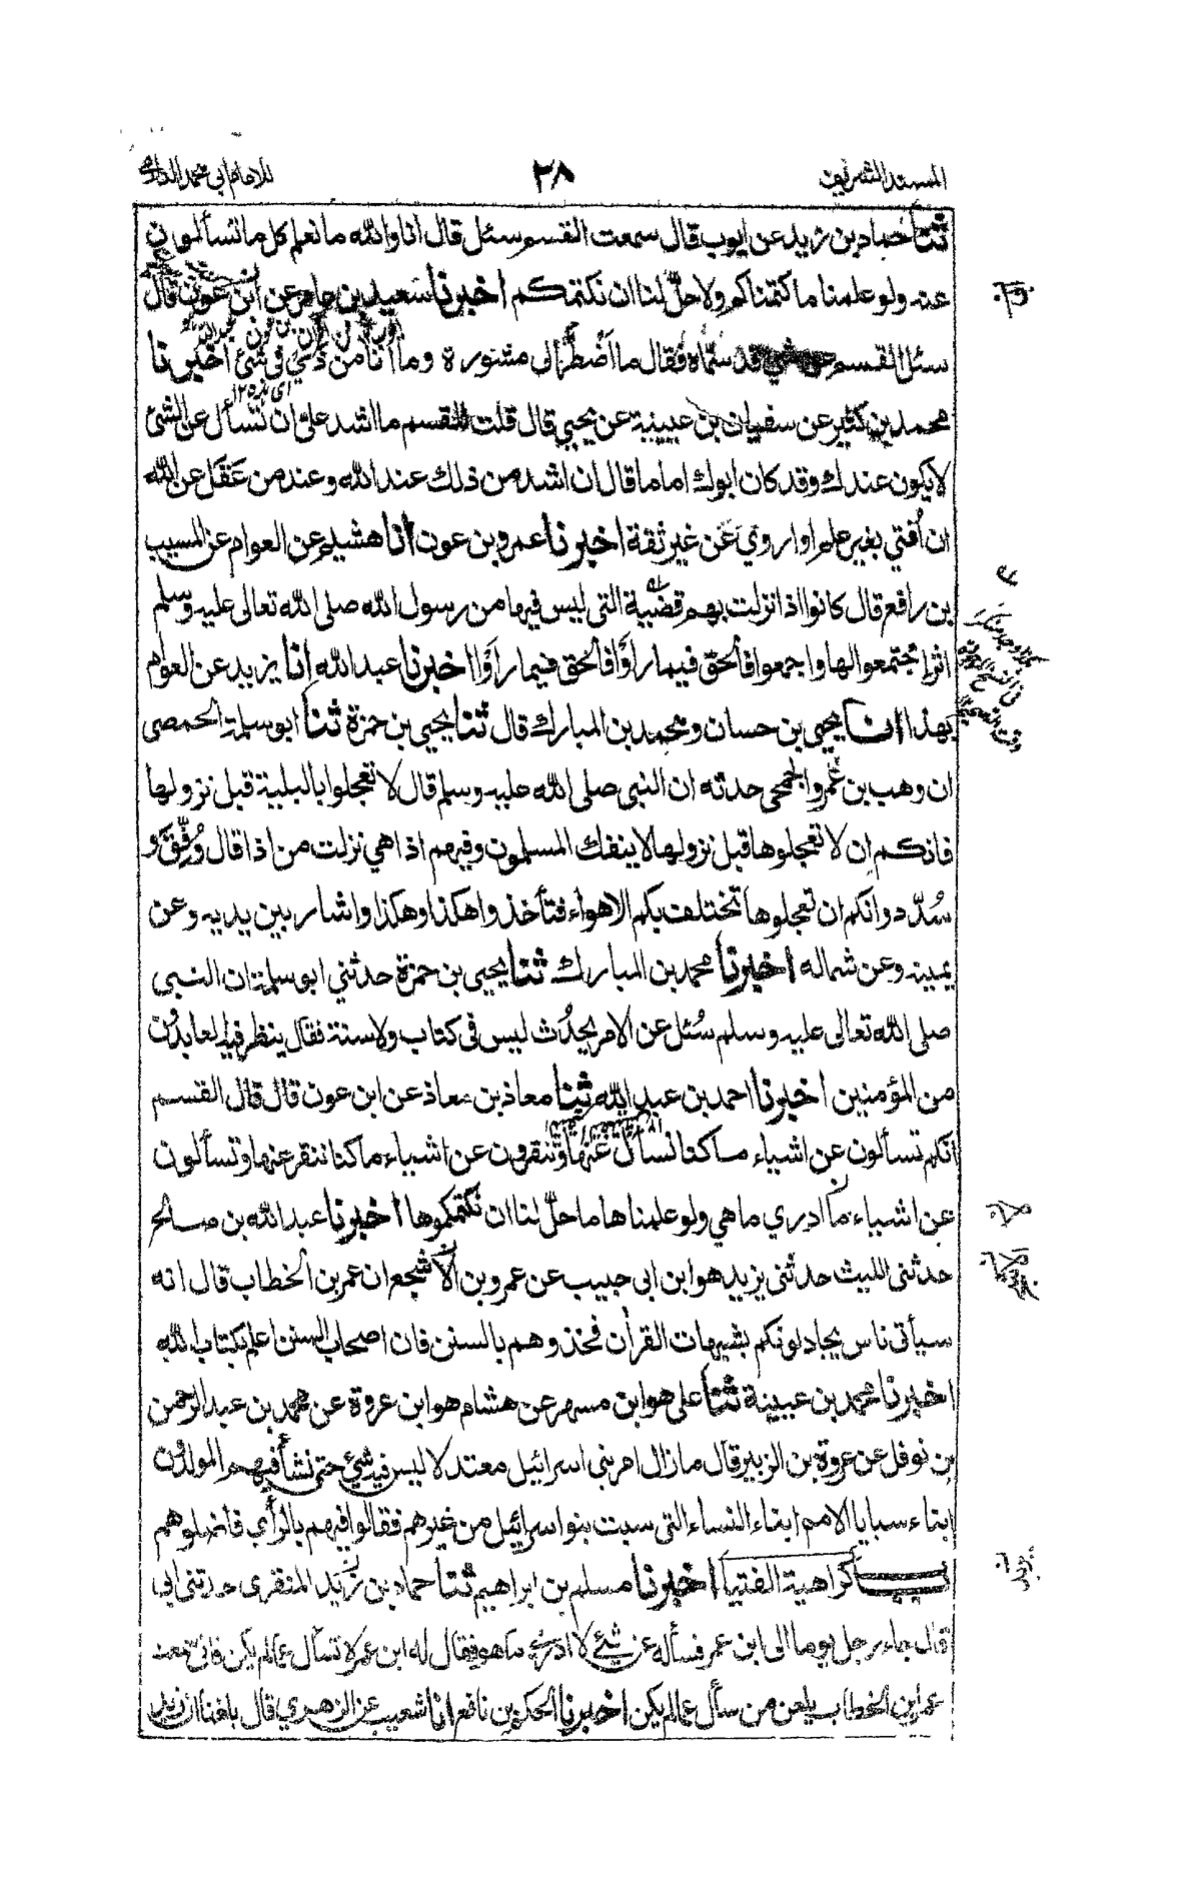 المسند الشريف ٢٨ للامام ابي محمد الدارمي
ثنا حماد بن زيد عن ايوب قال سمعت القسم سئل قال انا والله ما نعلم كل ما تسألون
عنه ولو علمنا ما كتمناكم ولا حلّ لنا ان نكتمكم اخبرنا سعيد بن عامر عن ابن عون قال
سئل القسم عن شي قد سمّاه فقال ما اضطرّ الى مشورة وما انا من ذي في شئ اخبرنا
اى هذه ١٢
محمد بن كثير عن سفيان بن عيينة عن يحيى قال قلت للقسم ما اشد علىّ ان تسأل عن الشئ
لا يكون عندك وقد كان ابوك اماما قال ان اشد من ذلك عند الله وعند من عَقَل عن الله
ان اُفتي بغير علم او اروي عَن غير ثقة اخبرنا عمرو بن عون انا هشيم عن العوام عن المسيب
بن رافع قال كانوا اذا نزلت بهم قضية التي ليس فيها من رسول الله صلى الله تعالى عليه وسلم
اثر اجتمعوا لها واجمعوا فالحقّ فيما راَوا فالحق فيما راَوا اخبرنا عبد الله انا يزيد عن العوام
بهذا انا يحيى بن حسان ومحمد بن المبارك قال ثنا يحيى بن حمزة ثنا ابو سلمة الحمصى
ان وهب بن عَمرو الجمحى حدثه ان النبى صلى الله عليه وسلم قال لا تعجلوا بالبلية قبل نزولها
فانكم اِن لا تعجلوها قبل نزولها لا ينفك المسلمون وفيهم اذا هي نزلت من اذا قال وُفِّقَ و
سُدّد وانكم ان تعجلوها تختلف بكم الاهواء فتأخذوا هكذا وهكذا واشار بين يديه وعن
يمينه وعن شماله اخبرنا محمد بن المبارك ثنا يحيى بن حمزة حدثني ابو سلمة ان النبى
صلى الله تعالى عليه وسلم سُئل عن الامر يحدُث ليس فى كتاب ولا سنة فقال ينظر فيه العابدون
من المؤمنين اخبرنا احمد بن عبد الله ثنا معاذ بن معاذ عن ابن عون قال قال القسم
انكم تسألون عن اشياء ما كنا نسأل عنها وتنقرون عن اشياء ما كنا ننقر عنها وتسألون
عن اشياء ما ادري ما هي ولو علمناها ما حلّ لنا ان نكتمكموها اخبرنا عبد الله بن صالح
حدثنى الليث حدثنى يزيد هو ابن ابى حبيب عن عمرو بن الاشجع ان عمر بن الخطاب قال انه
سيأتى ناس يجادلونكم بشبهات القرأن فخذوهم بالسنن فان اصحاب السنن اعلم بكتاب الله
اخبرنا محمد بن عيينة ثنا على هو ابن مسهر عن هشام هو ابن عروة عن محمد بن عبد الرحمن
بن نوفل عن عروة بن الزبير قال ما زال امر بنى اسرائيل معتدلا ليس فيه شئ حتى نشأ فيهم المولدون
ابناء سبايا الامم ابناء النساء التى سبت بنو اسرائيل من غيرهم فقالوا فيهم بالرأي فاضلوهم
باب كراهية الفتيا اخبرنا مسلم بن ابراهيم ثنا حماد بن زيد المنقرى حدثنى ابى
قال جاء رجل يوما الى ابن عمر فسأله عن شئ لا ادرى ما هو فقال له ابن عمر لا تسأل عمّا لم يكن فانى سمعت
عمر ابن الخطاب يلعن من سأل عمّا لم يكن اخبرنا الحكم بن نافع انا شعيب عن الزهري قال بلغنا ان زيد بن